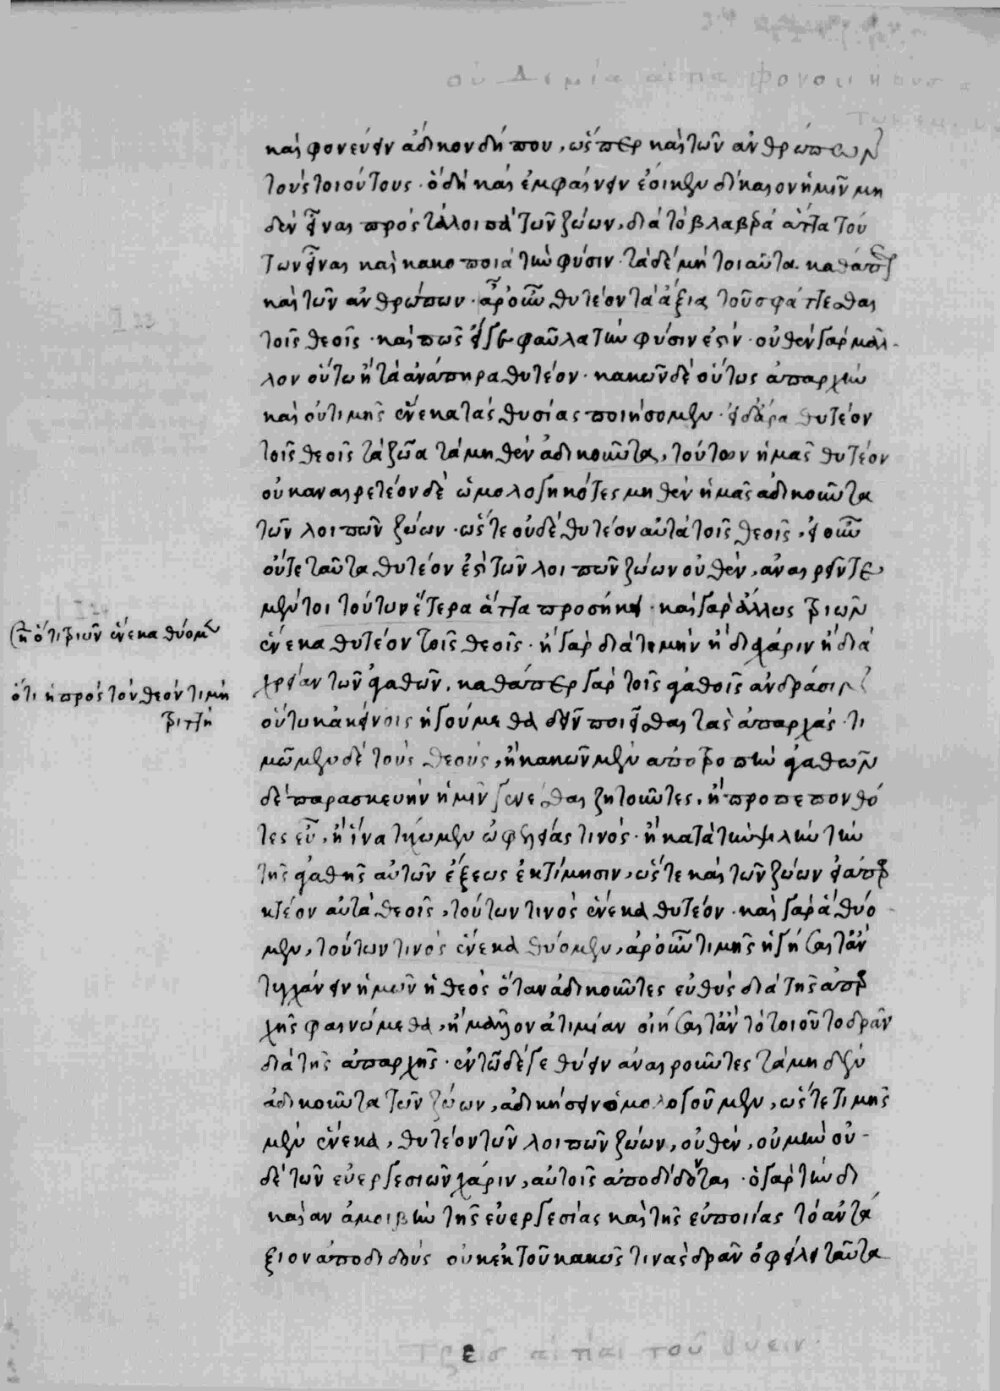 καὶ φονεύειν ἄδικον δήπου, ὥσπερ καὶ τῶν ἀνθρώπων
τοὺς τοιούτους· ὃ δὴ καὶ ἐμφαίνειν ἔοικεν δίκαιον ἡμῖν μη
δὲν εἶναι πρὸς τὰ λοιπὰ τῶν ζώων, διὰ τὸ βλαβερὰ ἄττα τού
των εἶναι καὶ κακοποιὰ τὴν φύσιν· τὰ δὲ μὴ τοιαῦτα· καθάπερ
καὶ τῶν ἀνθρώπων· ἆρ' οὖν θυτέον τὰ ἄξια τοῦ σφάττεσθαι
τοῖς θεοῖς· καὶ πῶς εἴγε φαῦλα τὴν φύσιν ἐστίν· οὐθὲν γὰρ μᾶλ-
λον οὕτω ἢ τὰ ἀνάπηρα θυτέον· κακῶν δὲ οὕτως ἀπαρχὴν
καὶ οὐ τιμῆς ἕνεκα τὰς θυσίας ποιήσομεν· εἰ δ' ἄρα θυτέον
τοῖς θεοῖς τὰ ζῶα τὰ μηθὲν ἀδικοῦντα, τούτων ἡμᾶς θυτέον
οὐκ ἀναιρετέον δὲ ὡμολογηκότες μηθὲν ἡμᾶς ἀδικοῦντα
τῶν λοιπῶν ζώων· ὥστε οὐδὲ θυτέον αὐτὰ τοῖς θεοῖς· εἰ οὖν
οὔτε ταῦτα θυτέον ἐστὶ τῶν λοιπῶν ζώων οὐθέν, ἀναιρεῖν τε
μέντοι τούτων ἕτερα ἄττα προσήκει· καὶ γὰρ ἄλλως τριῶν
ἕνεκα θυτέον τοῖς θεοῖς· ἢ γὰρ διὰ τιμὴν ἢ διὰ χάριν ἢ διὰ
χρείαν τῶν ἀγαθῶν, καθάπερ γὰρ τοῖς ἀγαθοῖς ἀνδράσιν
οὕτω κἀκείνοις ἡγούμεθα δεῖν ποιεῖσθαι τὰς ἀπαρχάς· τι
μῶμεν δὲ τοὺς θεούς, ἢ κακῶν μὲν ἀποτροπὴν ἀγαθῶν
δὲ παρασκευὴν ἡμῖν γενέσθαι ζητοῦντες, ἢ προπεπονθό
τες εὖ, ἢ ἵνα τύχωμεν ὠφελείας τινός· ἢ κατὰ τὴν ψιλὴν τὴν
τῆς ἀγαθῆς αὐτῶν ἕξεως ἐκτίμησιν, ὥστε καὶ τῶν ζώων εἰ ἀπαρ
κτέον αὐτὰ θεοῖς, τούτων τινὸς ἕνεκα θυτέον· καὶ γὰρ ἃ θύο
μεν, τούτων τινὸς ἕνεκα θύομεν, ἆρ' οὖν τιμῆς ἡγήσαιτ' ἂν
τυγχάνειν ἡμῶν ἢ θεὸς ὅταν ἀδικοῦντες εὐθὺς διὰ τῆς ἀπαρ
χῆς φαινώμεθα, ἢ μᾶλλον ἀτιμίαν οἰήσαιτ' ἂν τὸ τοιοῦτο δρᾶν
διὰ τῆς ἀπαρχῆς· ἐν τῷ δέ γε θύειν ἀναιροῦντες τὰ μηδὲν
ἀδικοῦντα τῶν ζώων, ἀδικήσειν ὁμολογοῦμεν, ὥστε τιμῆς
μὲν ἕνεκα, θυτέον τῶν λοιπῶν ζώων, οὐθέν, οὐ μὴν οὐ-
δὲ τῶν εὐεργεσιῶν χάριν, αὐτοῖς ἀποδιδόντας· ὁ γὰρ τὴν δι
καίαν ἀμοιβὴν τῆς εὐεργεσίας καὶ τῆς εὐποιίας τὸ ἀντά
ξιον ἀποδιδούς οὐκ ἐκ τοῦ κακῶς τινας δρᾶν ὀφείλει ταῦτα
ὅτι τριῶν ἕνεκα θύομεν
ὅτι ἡ πρὸς τὸν θεὸν τιμὴ
τριττή
τρεῖς αἰτίαι τοῦ θύειν